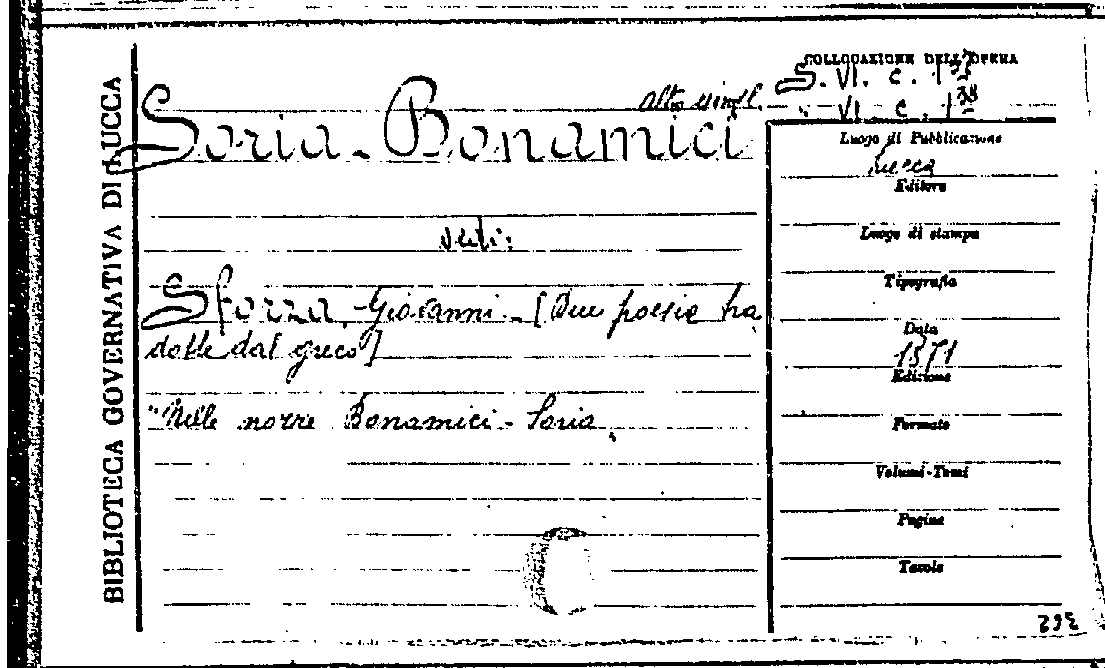 BIBLIOTECA GOVERNATIVA DI LUCCA
COLLOCAZIONE DELL'OPERA
S. VI. c. 137
" VI. c. 138
Soria - Bonamici
vedi:
Sforza, Giovanni. - [Due poesie tra
dotte dal greco]
"Nelle nozze Bonamici - Soria
Luogo di Pubblicazione
Lucca
Editore
Luogo di stampa
Tipografia
Data
1871
Edizione
Formato
Volumi-Tomi
Pagine
Tavole